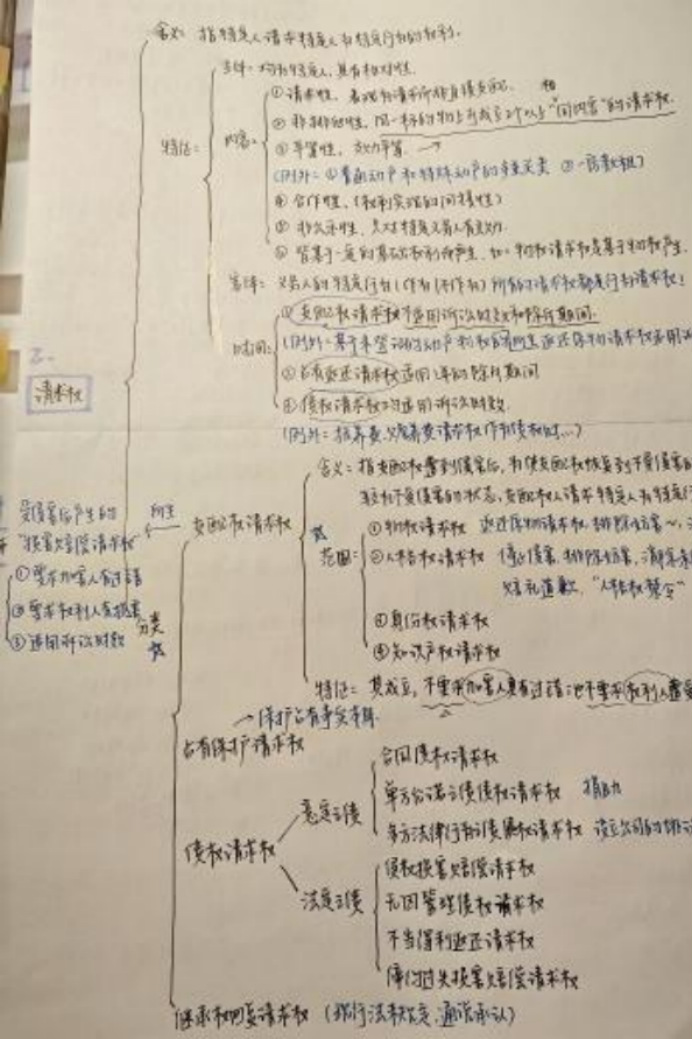 含义: 指特定人请求特定人为特定行为的权利.
主体: 均为特定人, 具有相对性.
特征:
内容:
①请求性,
②非排他性, 同一标的物上可成立2个以上"同内容"的请求权.
③平等性, 效力平等. →
(例外: ①普通动产和特殊动产的多重买卖 ②一房数租)
④合作性, (权利实现的间接性)
⑤非公示性,
⑥皆基于一定的基础权利而产生, 如: 物权请求权是基于物权产生.
客体: 义务人的特定行为(作为/不作为) 所有的请求权都是行为请求权!
时间:
①支配权请求权不适用诉讼时效和除斥期间.
(例外: 基于未登记的动产物权
②占有返还请求权适用1年的除斥期间
③债权请求权均适用诉讼时效.
(例外: 抚养费、赡养费请求权作为债权时...)
二.
请求权
含义: 指支配权遭到侵害后, 为使支配权恢复到不受侵害的
状态, 支配权人请求特定人为特定行
支配权请求权
派生
受侵害后产生的
"损害赔偿请求权"
①要求加害人有过错
②要求权利人有损害
③适用诉讼时效
分类
范围:
①物权请求权 返还原物请求权, 排除妨害~,
②人格权请求权 停止侵害, 排除妨害, 消除
赔礼道歉, "人格权禁令"
③身份权请求权
④知识产权请求权
特征: 其成立, 不要求加害人具有过错 也不要求权利人遭受
→保护占有事实本身.
占有保护请求权
债权请求权
意定之债
合同债权请求权
单方允诺之债债权请求权 捐助
多方法律行为之债债权请求权 设立公司的
法定之债
侵权损害赔偿请求权
无因管理债权请求权
不当得利返还请求权
缔约过失损害赔偿请求权
继承权回复请求权 (现行法未规定, 通说承认)